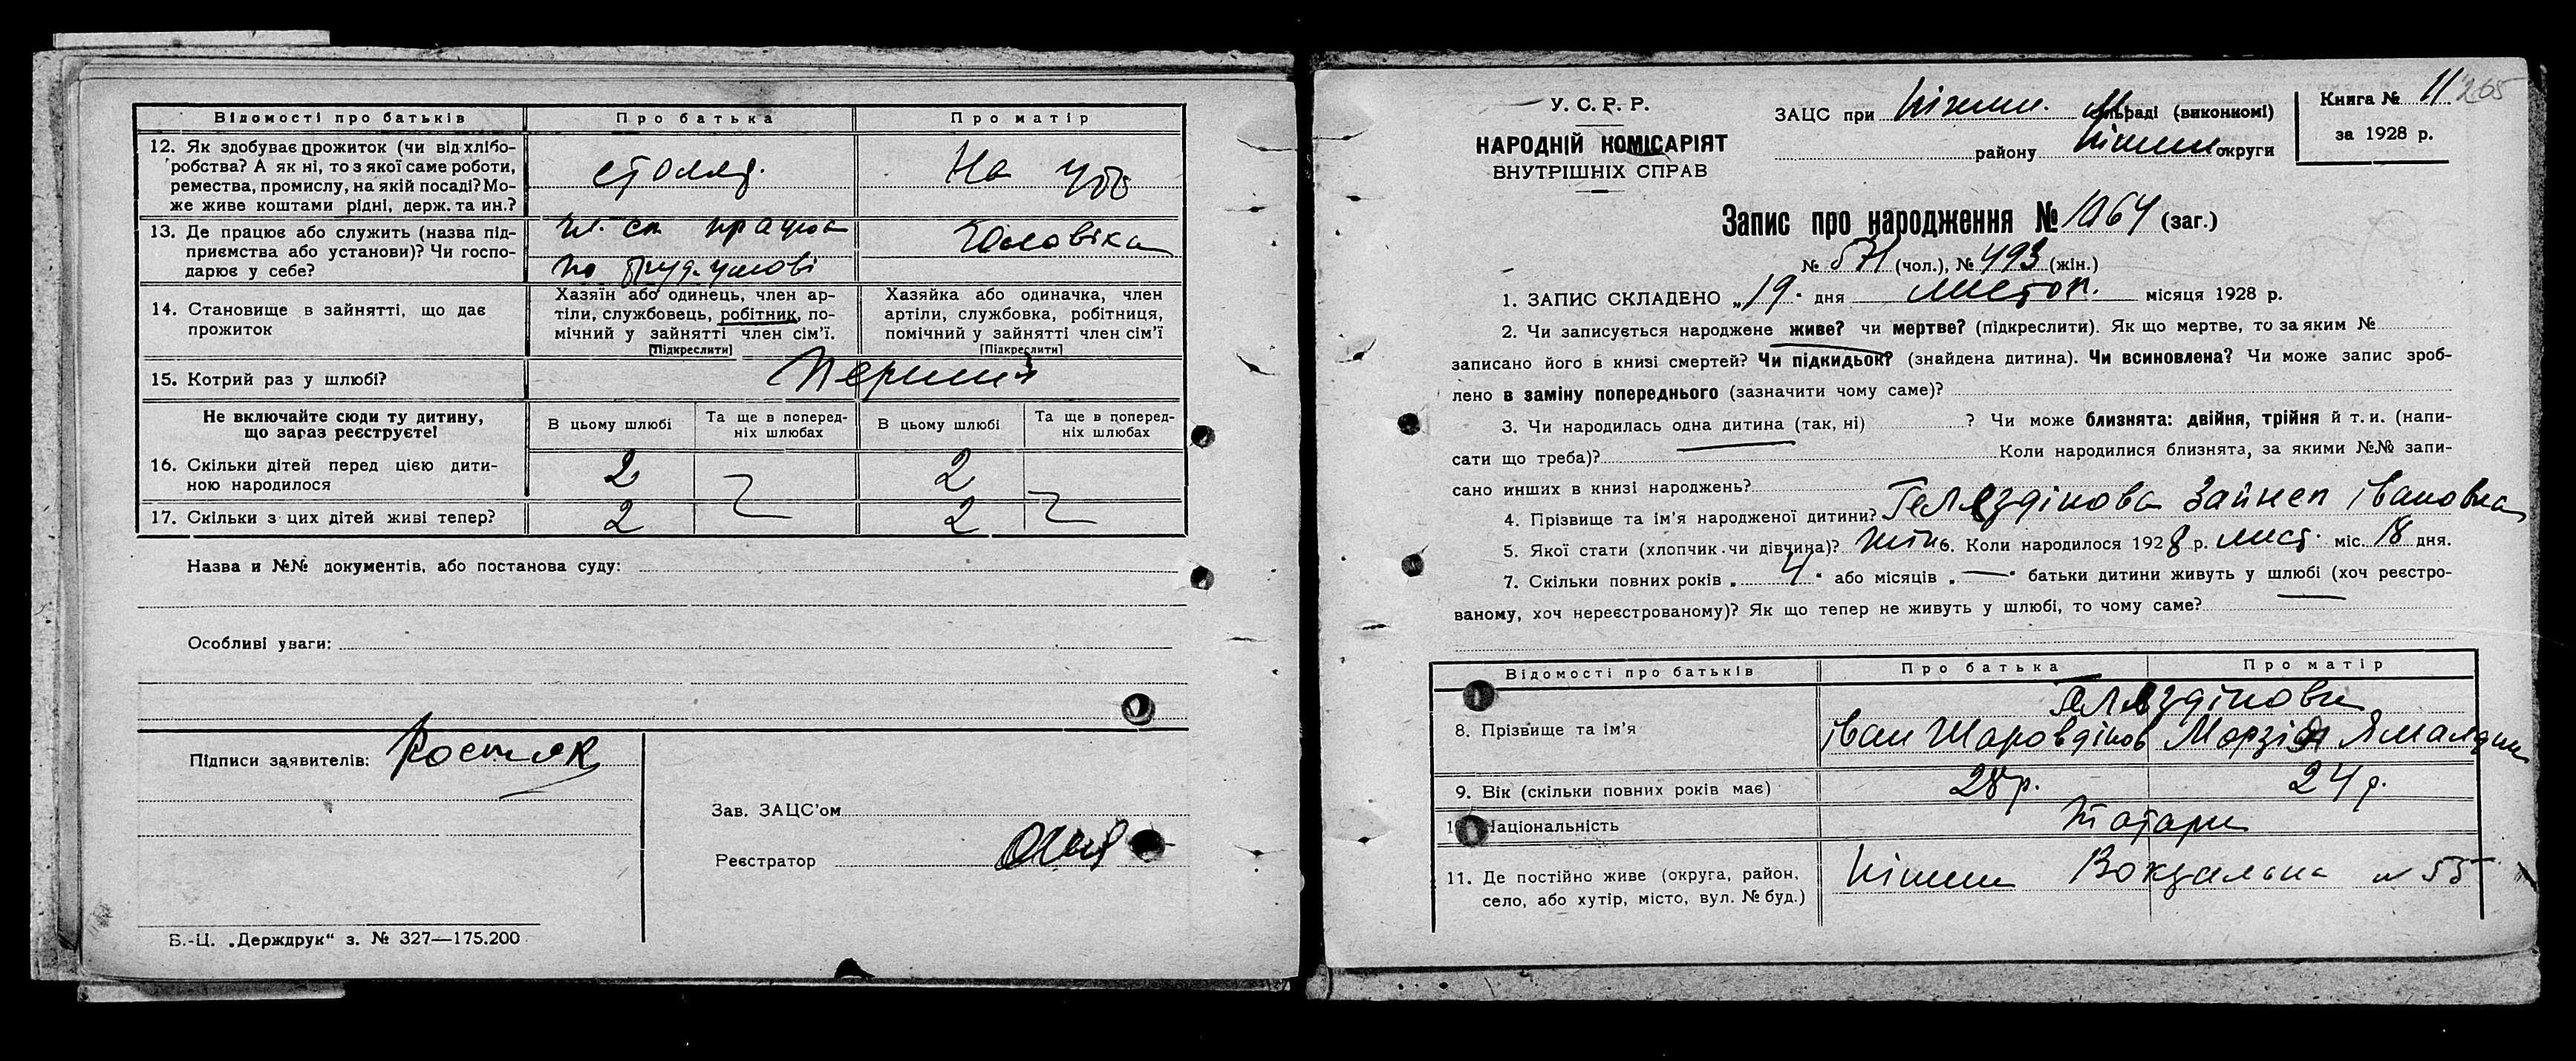 Відомості про батьків Про батька Про матір
12. Як здобуває прожиток (чи від хлібо-
робства? А як ні, то з якої саме роботи,
ремества, промислу, на якій посаді? Мо-
же живе коштами рідні, держ. та ин.?
столяр. На
13. Де працює або служить (назва під-
приємства або установи)? Чи госпо-
дарює у себе?
працює
по труд. умові
чоловіка
14. Становище в зайнятті, що дає
прожиток
Хазяїн або одинець, член ар-
тіли, службовець, робітник, по-
мічний у зайнятті член сім'ї.
[Підкреслити]
Хазяйка або одиначка, член
артіли, службовка, робітниця,
помічний у зайнятті член сім'ї
[Підкреслити]
15. Котрий раз у шлюбі? Перший
Не включайте сюди ту дитину,
що зараз реєструєте!
В цьому шлюбі
Та ще в поперед-
ніх шлюбах
В цьому шлюбі
Та ще в поперед-
ніх шлюбах
16. Скільки дітей перед цією дити-
ною народилося
2 2
17. Скільки з цих дітей живі тепер? 2 2
Назва и №№ документів, або постанова суду:
Особливі уваги:
Підписи заявителів: Костюк
Зав. ЗАЦС'ом
Реєстратор
Б.-Ц. „Держдрук“ з. № 327—175.200
У. С. Р. Р.
НАРОДНІЙ КОМІСАРІЯТ
ВНУТРІШНІХ СПРАВ
ЗАЦС при Ніжин. М раді (виконкомі)
району Ніжин округи
Книга № 11
265
за 1928 р.
Запис про народження № 1064 (заг.)
№ 571 (чол.), № 493 (жін.)
1. ЗАПИС СКЛАДЕНО „19. дня листоп. місяця 1928 р.
2. Чи записується народжене живе? чи мертве? (підкреслити). Як що мертве, то за яким №
записано його в книзі смертей? Чи підкидьок? (знайдена дитина). Чи всиновлена? Чи може запис зроб-
лено в заміну попереднього (зазначити чому саме)?
3. Чи народилась одна дитина (так, ні) ? Чи може близнята: двійня, трійня й т. и. (напи-
сати що треба)? Коли народилися близнята, за якими №№ запи-
сано инших в книзі народжень?
4. Прізвище та ім'я народженої дитини? Геляздінова Зайнеп Івановна
5. Якої стати (хлопчик чи дівчина)? жін 6. Коли народилося 1928 р. лист. міс. 18 дня.
7. Скільки повних років „ 4 “ або місяців „ — “ батьки дитини живуть у шлюбі (хоч реєстро-
ваному, хоч нереєстрованому)? Як що тепер не живуть у шлюбі, то чому саме?
Відомості про батьків Про батька Про матір
Геляздінови
8. Прізвище та ім'я Іван Шаровдінов Морзія
9. Вік (скільки повних років має) 28 р. 24 р.
10. Національність Татари
11. Де постійно живе (округа, район,
село, або хутір, місто, вул. № буд.)
Ніжин Вокзальна № 55